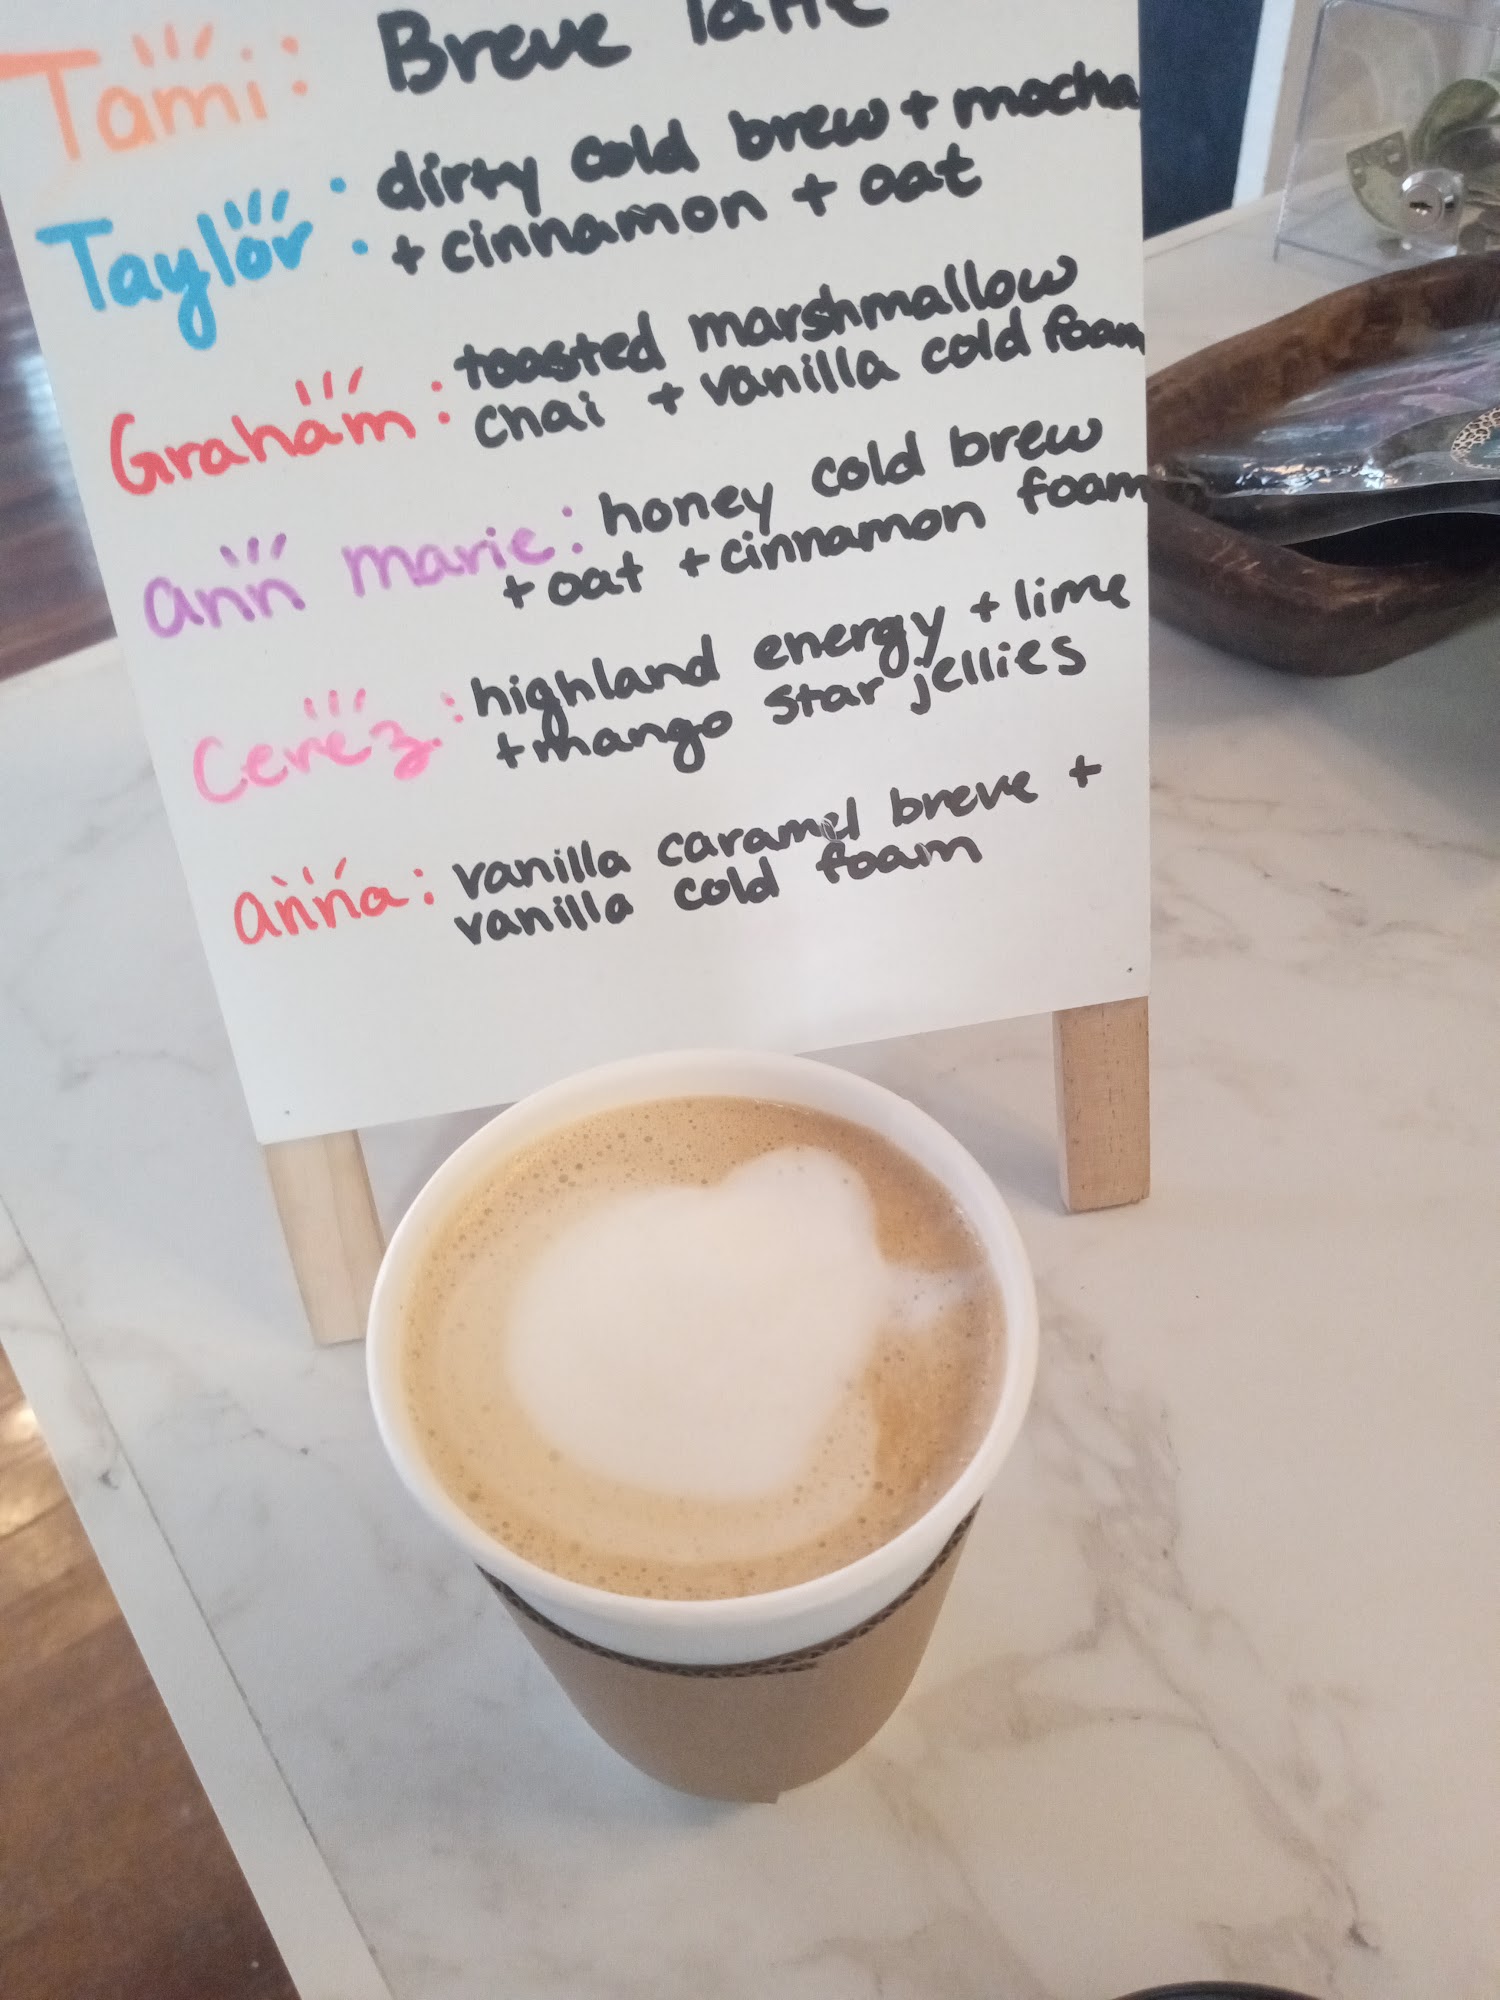 Tami: Breve latte
Taylor: dirty cold brew + mocha
+ cinnamon + oat
Graham: toasted marshmallow
chai + vanilla cold foam
ann marie: honey cold brew
+ oat + cinnamon foam
Cerez: highland energy + lime
+ mango star jellies
anna: vanilla caramel breve +
vanilla cold foam